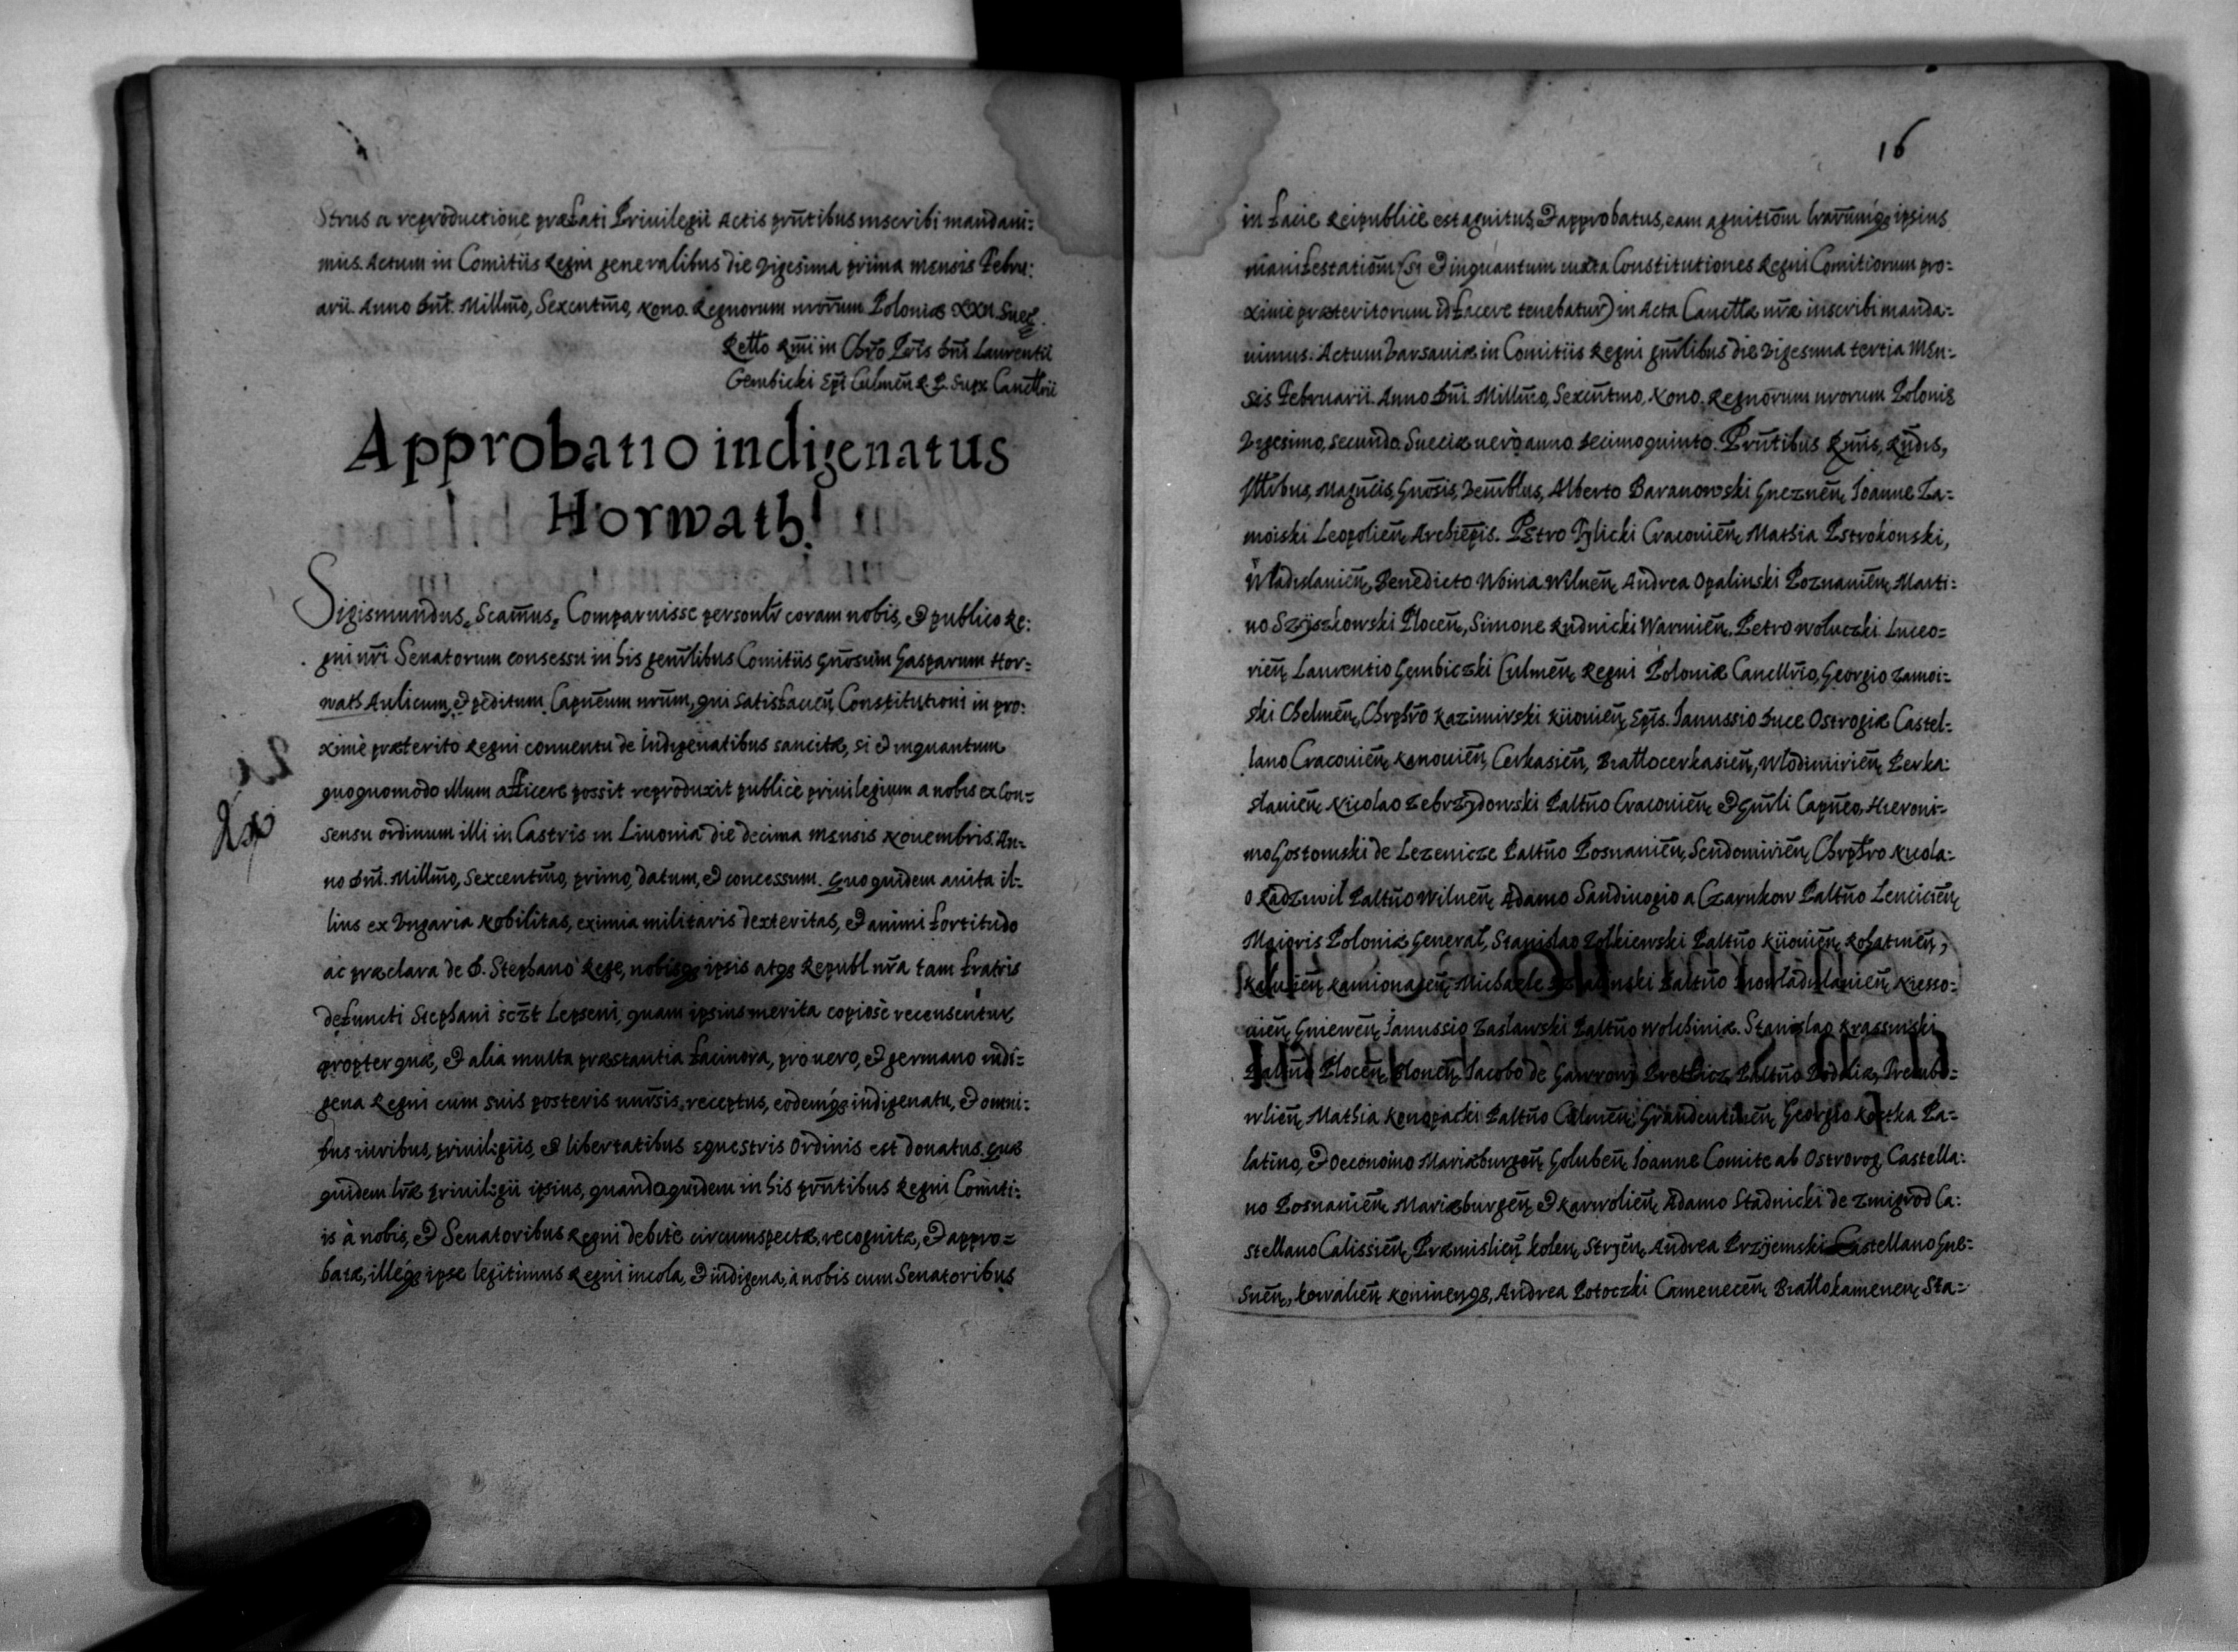 Strus a reproductione præfati Priuilegii Actis pñtibus inscribi mandaui=
mus. Actum in Comitiis Regni generalibus die Vigesima prima mensis Febru=
arii. Anno Dni. Millmo, Sexcentmo, Nono. Regnorum nrorum Poloniæ XXII. Suec.
Retto Rmi in Chro Pris Dni Laurentii
Gembicki Epi Culmen R. P. Supr. Cancllrii
Approbatio indigenatus
Horwath.
Sigismundus, Scamus, Comparuisse personlr coram nobis, & publico Re=
gni nri Senatorum consessu in his genrlibus Comitiis Gnosum Gasparum Hor=
wath Aulicum, & peditum Capneum nrum, qui satisfacien Constitutioni in pro=
ximè præterito Regni conuentu de Indigenatibus sancitæ, si & inquantum
quoquomodo illum afficere possit reproduxit publicè priuilegium a nobis ex Con=
sensu ordinum illi in Castris in Liuonia die decima mensis Nouembris. An=
no Dni. Millmo, Sexcentmo, primo, datum, & concessum. Quo quidem auita il=
lius ex Vngaria Nobilitas, eximia militaris dexteritas, & animi fortitudo
ac præclara de D. Stephano Rege, nobisqs ipsis atqs Republ nra tam fratris
defuncti Stephani sczt Lepseni, quam ipsius merita copiosè recensentur
propter quæ, & alia multa præstantia facinora, pro uero, & germano indi=
gena Regni cum suis posteris uniursis receptus, eodemqs indigenatu, & omni=
bus iuribus, priuilegiis, & libertatibus Equestris Ordinis est donatus. Quæ
quidem lræ priuilegii ipsius, quandoquidem in his pñtibus Regni Comiti=
is à nobis, & Senatoribus Regni debitè circumspectæ, recognitæ, & appro=
batæ, illeqs ipse legitimus Regni incola, & indigena, à nobis cum Senatoribus
16
in facie Reipublicè est agnitus, & approbatus, eam agnitiom lrarumqs ipsius
manifestatiom (si & inquantum iuxta Constitutiones Regni Comitiorum pro=
ximè præteritorum id facere tenebatur) in Acta Cancllæ nræ inscribi manda=
uimus. Actum Varsauiæ in Comitiis Regni gnrlibus die Vigesima tertia Men=
sis Februarii. Anno Dni. Millmo, Sexcntmo, Nono. Regnorum nrorum Poloniæ
Vigesimo, secundo. Sueciæ uero anno decimoquinto. Prntibus Rmis, Rndis,
Illribus, Magncis, Gnosis, Venrblus, Alberto Baranowski Gneznen, Ioanne Za=
moiski Leopolien, Archiepis. Petro Tylicki Cracouien, Mathia Pstrokonski,
Wladislauien, Benedicto Woina Wilnen, Andrea Opalinski Poznanien, Marti=
no Szyszkowski Plocen, Simone Rudnicki Warmien, Petro Woluczki Luceo=
rien, Laurentio Gembiczki Culmen, Regni Poloniæ Cancllrio, Georgio Zamoi=
ski Chelmen, Chrphro Kazimirski Kiiouien, Epis. Ianussio Duce Ostrogiæ Castel=
lano Cracouien, Kanouien, Cerkasien, Biallocerkasien, Wlodimirien, Perka=
slauien, Nicolao Zebrzydowski Paltno Cracouien, & Gnrli Capneo, Hieroni=
mo Gostomski de Lezenicze Paltno Posnanien, Sendomirien, Chrphro Nicola=
o Radziwil Paltno Wilnen, Adamo Sandiuogio a Czarnkow Paltno Lencicien,
Maioris Poloniæ General, Stanislao Zolkiewski Paltno Kiiouien, Rohatinen,
Kalusien, Kamionacen, Michaele Paltno Inowladislauien, Niesso=
uien, Gniewen, Ianussio Zaslawski Paltno Wolhiniæ. Stanislao Krassinski
Paltno Plocen, Blonen, Iacobo de Gawrony Pretficz, Paltno Podoliæ, Trembo=
wlien, Mathia Konopacki Paltno Culmen, Grandentinen, Georgio Kostka Pa=
latino, & Oeconomo Mariæburgen, Goluben, Ioanne Comite ab Ostrorog, Castella=
no Posnanien, Mariæburgen, & Karwolien, Adamo Stadnicki de Zmigrod Ca=
stellano Calissien, Præmislien, Kolen, Stryen, Andrea Przijemski Castellano Gne=
snen, Kowalien, Koninenqs, Andrea Potoczki Camenecen, Biallokamenen, Sta=